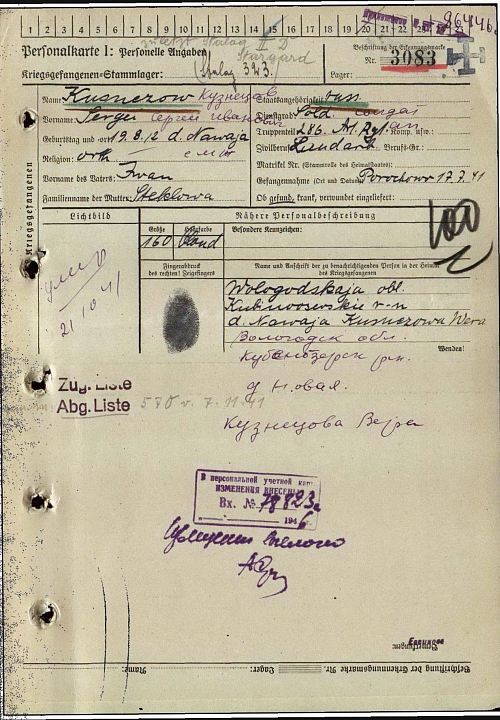 1 2 3 4 5 6 7 8 9 10 11 12 13 14 15 16 17 18 19 20 21 22 23 24 25
Personalkarte I: Personelle Angaben
zuletzt Stalag II D
Stargard
Kriegsgefangenen-Stammlager: Stalag 323.
Beschriftung der Erkennungsmarke
Nr. 3083
Lager:
Name: Kusnezow Кузнецов
Staatsangehörigkeit: russ.
Vorname: Sergei Сергей Иванович
Dienstgrad: Sold. солдат
Geburtstag und -ort 19.8.12 d. Nawaja
Truppenteil: 286. Komp. usw.:
Religion: orth
Zivilberuf: Berufs-Gr.:
Vorname des Vaters: Iwan
Matrikel Nr. (Stammrolle des Heimatstaates):
Gefangennahme (Ort und Datum): Porochow 17.7.41
Familienname der Mutter: Steklowa
Ob gesund, krank, verwundet eingeliefert:
Kriegsgefangenen
Lichtbild
Nähere Personalbeschreibung
Größe
Haarfarbe
Besondere Kennzeichen:
160 blond
Fingerabdruck
des rechten! Zeigefingers
Name und Anschrift der zu benachrichtigenden Person in der Heimat
des Kriegsgefangenen
умер
21.10.41
Wologodskaja obl.
Kubinooserskij r-n
d. Nawaja Kusnezowa Wera
Вологодск обл.
Wenden!
Кубенозерск рн.
Zug. Liste
Abg. Liste 580 v. 7.11.41
д Новая.
Кузнецова Вера
В персональной учетной кар.
ИЗМЕНЕНИЯ ВНЕСЕНЫ
Вх. № 18823с
194
Bemerkungen:
Beschriftung der Erkennungsmarke Nr. Lager: Name: